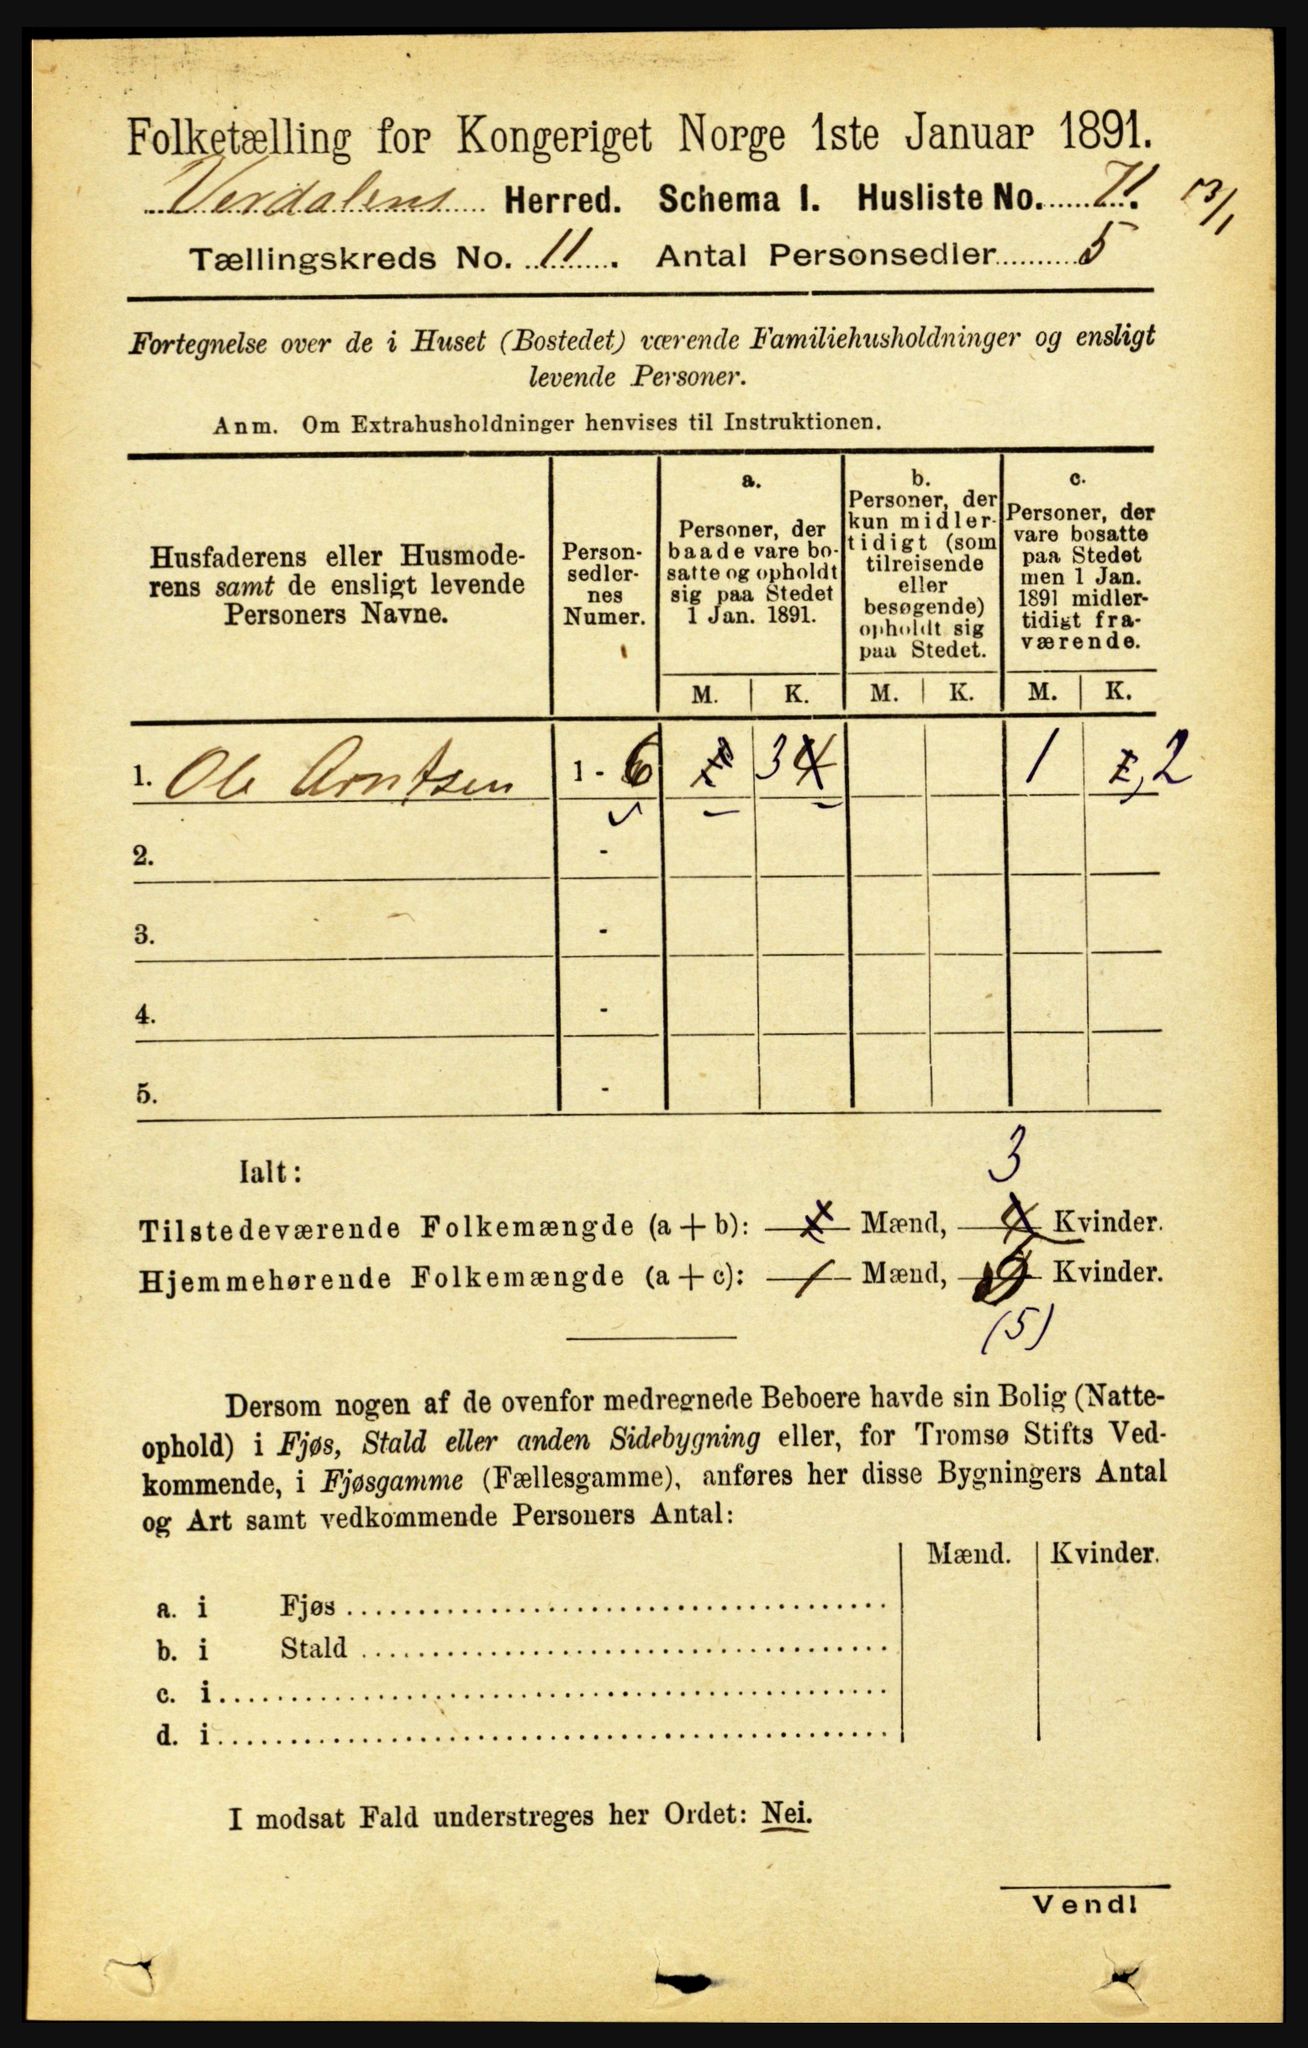 Folketælling for Kongeriget Norge 1ste Januar 1891.
Verdalens Herred. Schema I. Husliste No. 71. 13/1
Tællingskreds No. 11. Antal Personsedler 5
Fortegnelse over de i Huset (Bostedet) værende Familiehusholdninger og ensligt
levende Personer.
Anm. Om Extrahusholdninger henvises til Instruktionen.
Husfaderens eller Husmode-
rens samt de ensligt levende
Personers Navne.
Person-
sedler-
nes
Numer.
a.
Personer, der
baade vare bo-
satte og opholdt
sig paa Stedet
1 Jan. 1891.
b.
Personer, der
kun midler-
tidigt (som
tilreisende
eller
besøgende)
opholdt sig
paa Stedet.
c.
Personer, der
vare bosatte
paa Stedet
men 1 Jan.
1891 midler-
tidigt fra-
værende.
M. K. M. K. M. K.
1. Ole Arntsen 1 - 6 3 4 1 2
2. -
3. -
4. -
5. -
3
Ialt:
Tilstedeværende Folkemængde (a + b): Mænd, 4 Kvinder.
Hjemmehørende Folkemængde (a + c): 1 Mænd, Kvinder.
(5)
Dersom nogen af de ovenfor medregnede Beboere havde sin Bolig (Natte-
ophold) i Fjøs, Stald eller anden Sidebygning eller, for Tromsø Stifts Ved-
kommende, i Fjøsgamme (Fællesgamme), anføres her disse Bygningers Antal
og Art samt vedkommende Personers Antal:
Mænd. Kvinder.
a. i Fjøs
b. i Stald
c. i
d. i
I modsat Fald understreges her Ordet: Nei.
Vendl